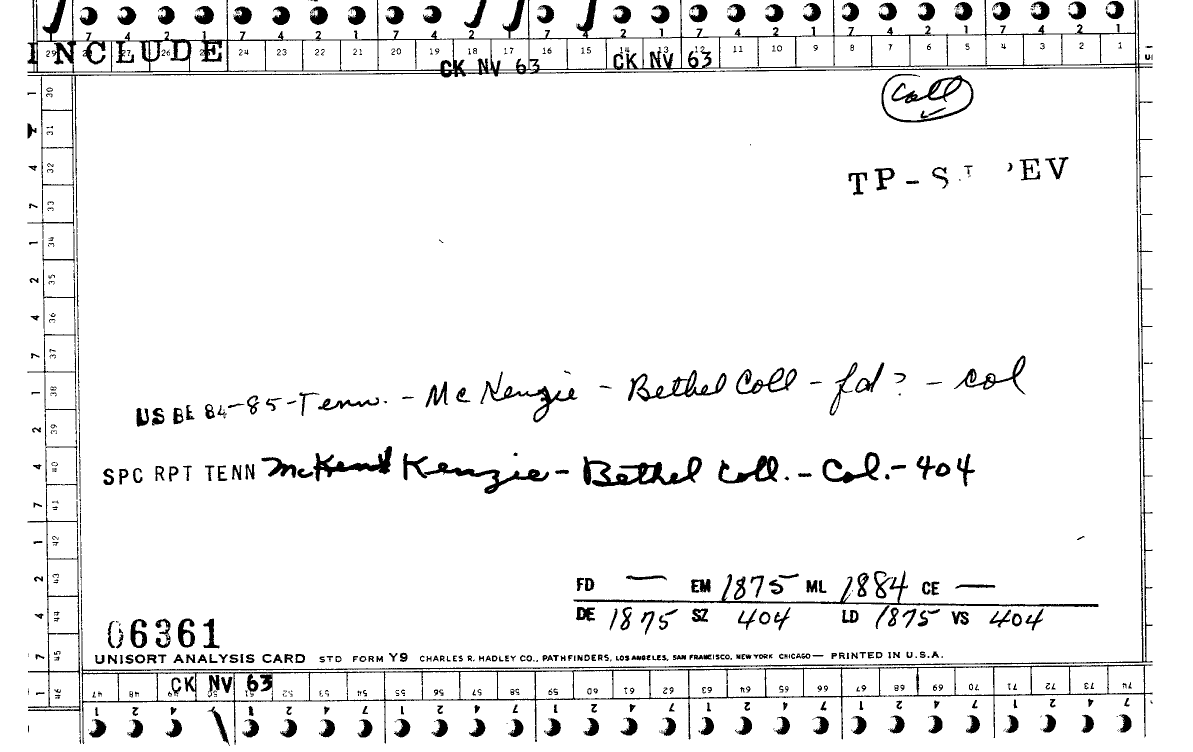 7 4 2 1 7 4 2 1 7 4 2 1 7 4 2 1 7 4 2 1 7 4 2 1 7 4 2 1
INCLUDE
24 23 22 21 20 19 18 17 16 15 14 13 12 11 10 9 8 7 6 5 4 3 2 1
CK NV 63 CK NV 63
Coll
TP-S
1 30
31
4 32
7 33
1 34
2 35
4 36
7 37
1 38
2 39
4 40
7 41
1 42
2 43
4 44
7 45
1 46
US BE 84-85-Tenn. - McKenzie - Bethel Coll - fd? - col
SPC RPT TENN McKenzie - Bethel Coll. - Col. - 404
FD — EM 1875 ML 1884 CE —
DE 1875 SZ 404 LD 1875 VS 404
06361
UNISORT ANALYSIS CARD STD FORM Y9 CHARLES R. HADLEY CO., PATHFINDERS, LOS ANGELES, SAN FRANCISCO, NEW YORK CHICAGO — PRINTED IN U.S.A.
CK NV 63
47 48 49 50 51 52 53 54 55 56 57 58 59 60 61 62 63 64 65 66 67 68 69 70 71 72 73 74
1 2 4 1 2 4 7 1 2 4 7 1 2 4 7 1 2 4 7 1 2 4 7 1 2 4 7